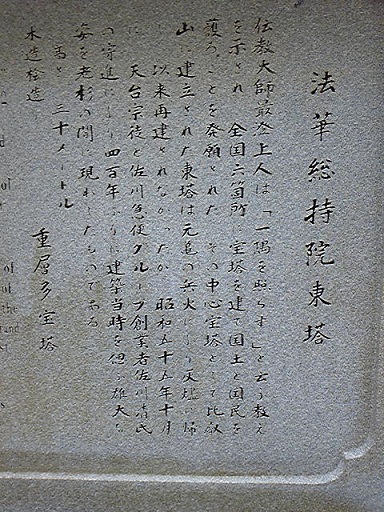 法華総持院東塔
伝教大師最澄上人は「一隅を照らす」と云う教え
を示され 全国六箇所に宝塔を建て国土と国民を
護ることを発願された その中心宝塔として比叡
山に建立された東塔は元亀の兵火により灰燼に帰
し 以来再建されなかったが 昭和五十五年十月
に 天台宗徒と佐川急便グループ創業者佐川清氏
の寄進により四百年ぶりに建築当時を偲ぶ雄大な
姿を老杉の間に現わしたものである
高さ 三十メートル
木造 重層多宝塔
of
of
the
and